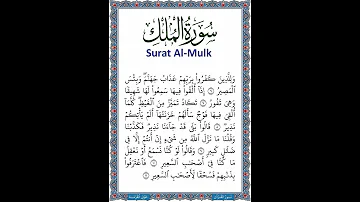 سُورَةُ الْمُلْكِ
Surat Al-Mulk
وَلِلَّذِينَ كَفَرُوا۟ بِرَبِّهِمْ عَذَابُ جَهَنَّمَ وَبِئْسَ
ٱلْمَصِيرُ ٦ إِذَآ أُلْقُوا۟ فِيهَا سَمِعُوا۟ لَهَا شَهِيقًا
وَهِىَ تَفُورُ ٧ تَكَادُ تَمَيَّزُ مِنَ ٱلْغَيْظِ كُلَّمَآ
أُلْقِىَ فِيهَا فَوْجٌ سَأَلَهُمْ خَزَنَتُهَآ أَلَمْ يَأْتِكُمْ
نَذِيرٌ ٨ قَالُوا۟ بَلَىٰ قَدْ جَآءَنَا نَذِيرٌ فَكَذَّبْنَا
وَقُلْنَا مَا نَزَّلَ ٱللَّهُ مِن شَىْءٍ إِنْ أَنتُمْ إِلَّا فِى
ضَلَـٰلٍ كَبِيرٍ ٩ وَقَالُوا۟ لَوْ كُنَّا نَسْمَعُ أَوْ نَعْقِلُ
مَا كُنَّا فِىٓ أَصْحَـٰبِ ٱلسَّعِيرِ ١٠ فَٱعْتَرَفُوا۟
بِذَنۢبِهِمْ فَسُحْقًا لِّأَصْحَـٰبِ ٱلسَّعِيرِ ١١